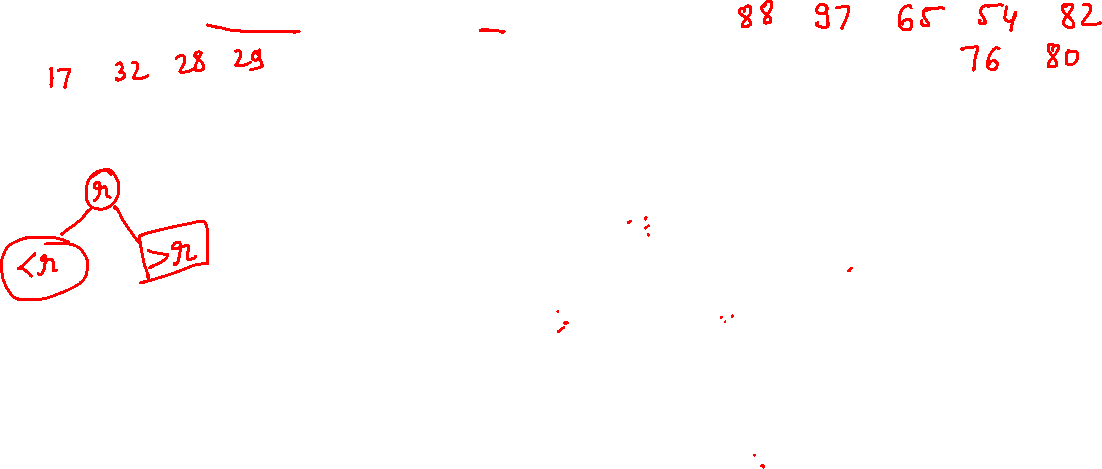 88 97 65 54 82
76 80
17 32 28 29
r
<r >r